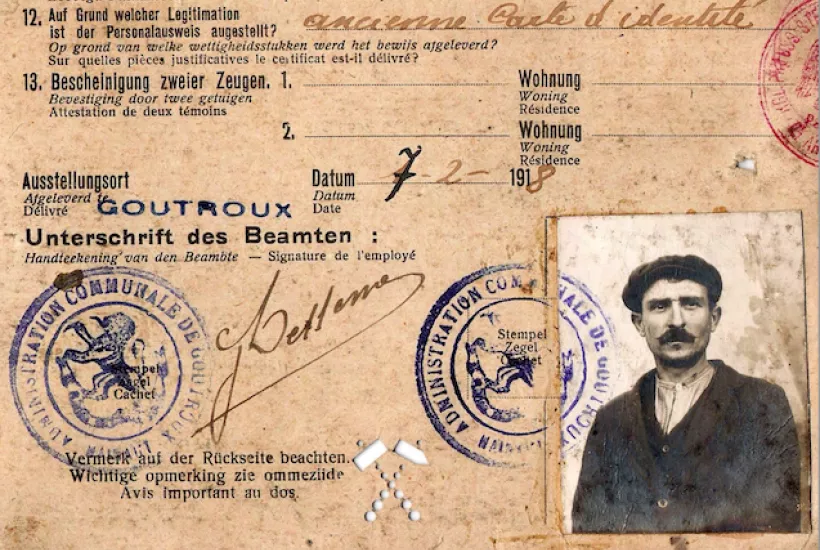 12. Auf Grund welcher Legitimation ancienne Carte d'identité
ist der Personalausweis augestellt?
Op grond van welke wettigheidsstukken werd het bewijs afgeleverd?
Sur quelles pièces justificatives le certificat est-il délivré?
13. Bescheinigung zweier Zeugen. 1. Wohnung
Bevestiging door twee getuigen Woning
Attestation de deux témoins Résidence
2. Wohnung
Woning
Résidence
Ausstellungsort Datum 7-2- 1918
Afgeleverd te Datum
Délivré GOUTROUX Date
Unterschrift des Beamten :
Handteekening van den Beambte — Signature de l'employé
ADMINISTRATION COMMUNALE DE GOUTROUX
HAINAUT
Stempel
Zegel
Cachet
ADMINISTRATION COMMUNALE DE GOUTROUX
HAINAUT
Stempel
Zegel
Cachet
Vermerk auf der Rückseite beachten.
Wichtige opmerking zie ommezijde
Avis important au dos.